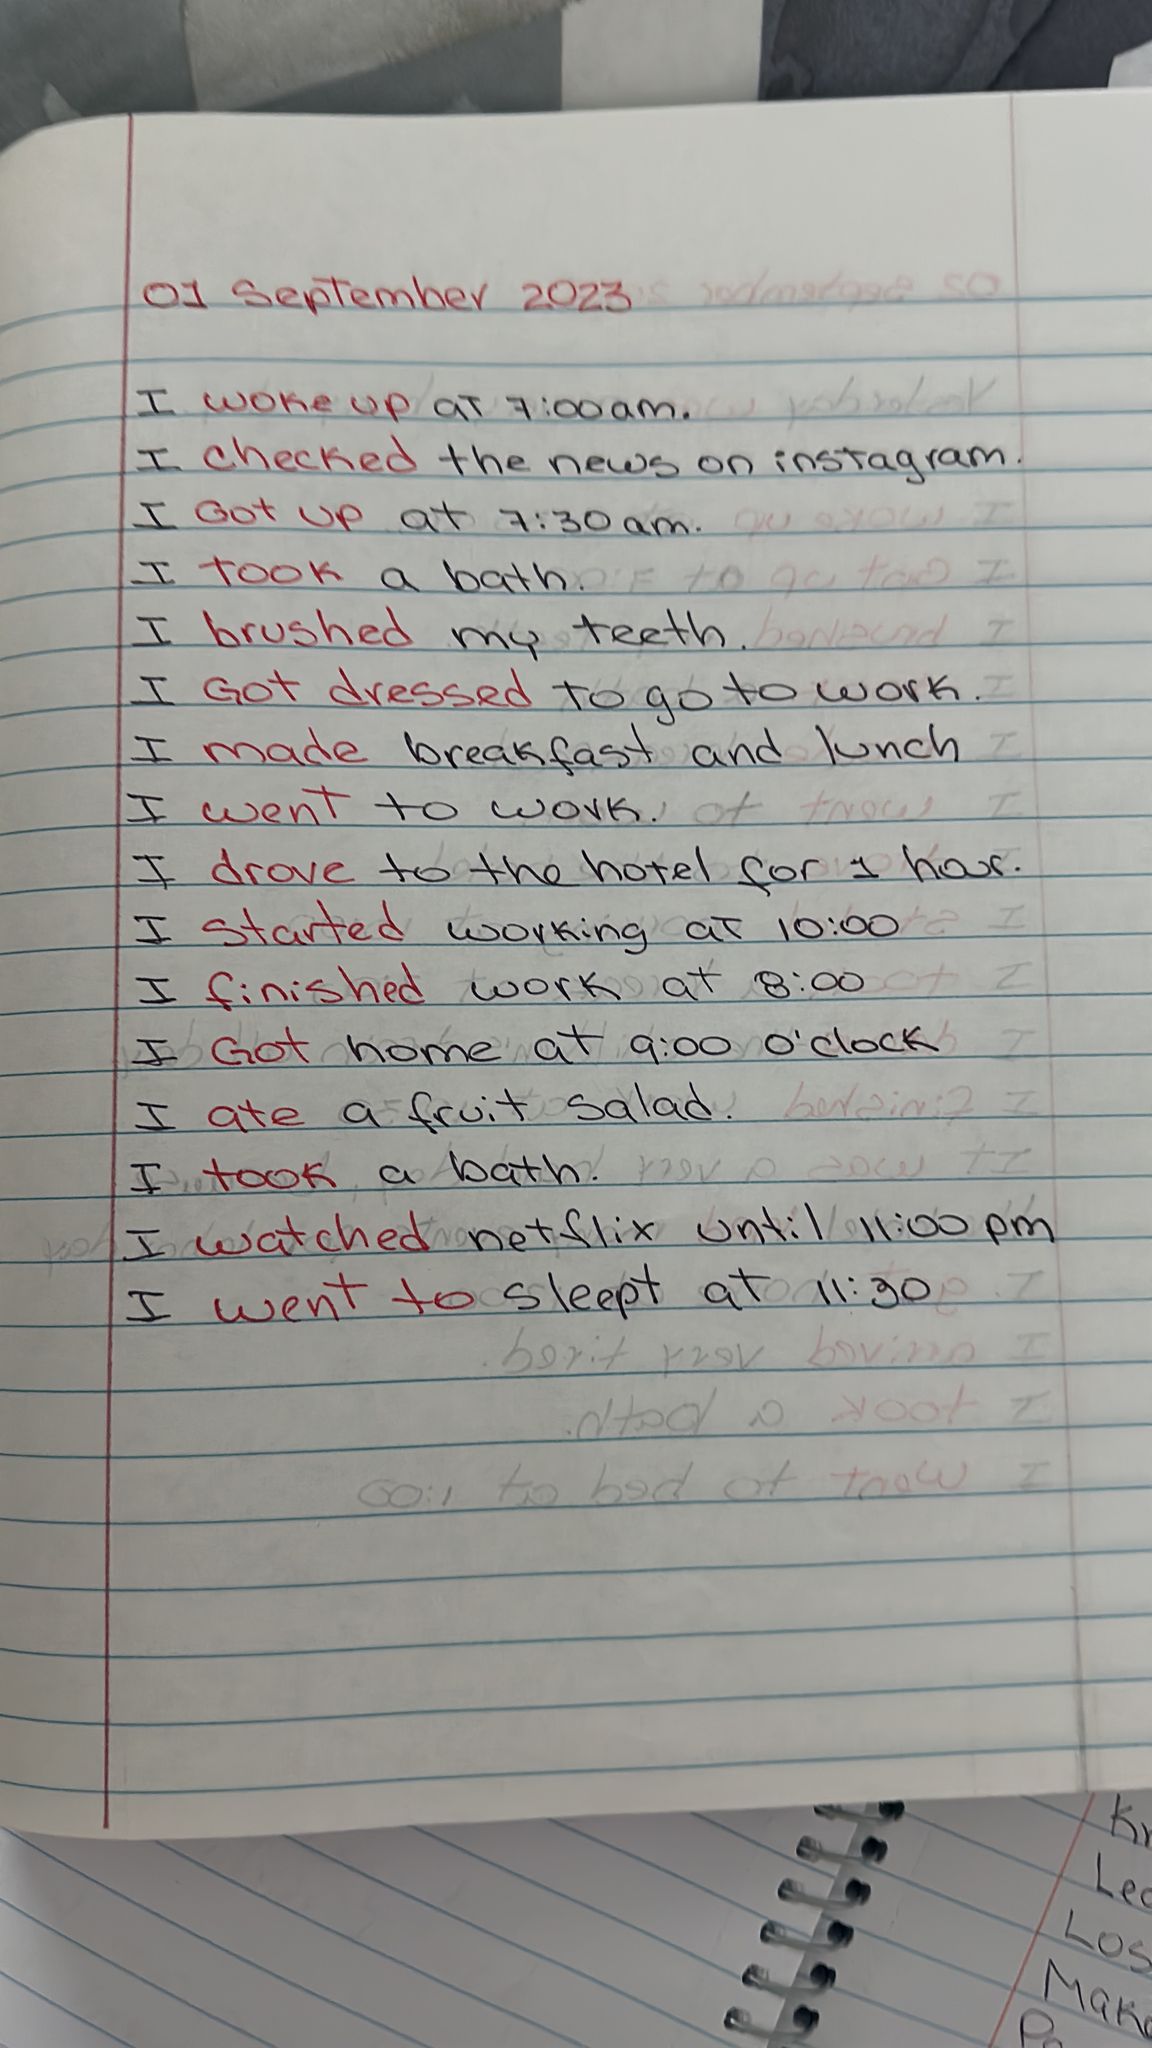 01 September 2023
I woke up at 7:00am.
I checked the news on instagram.
I Got up at 7:30am.
I took a bath.
I brushed my teeth.
I Got dressed to go to work.
I made breakfast and lunch
I went to work.
I drove to the hotel for 1 hour.
I started working at 10:00
I finished work at 8:00
I Got home at 9:00 o'clock
I ate a fruit salad.
I took a bath.
I watched netflix until 11:00 pm
I went to sleept at 11:30